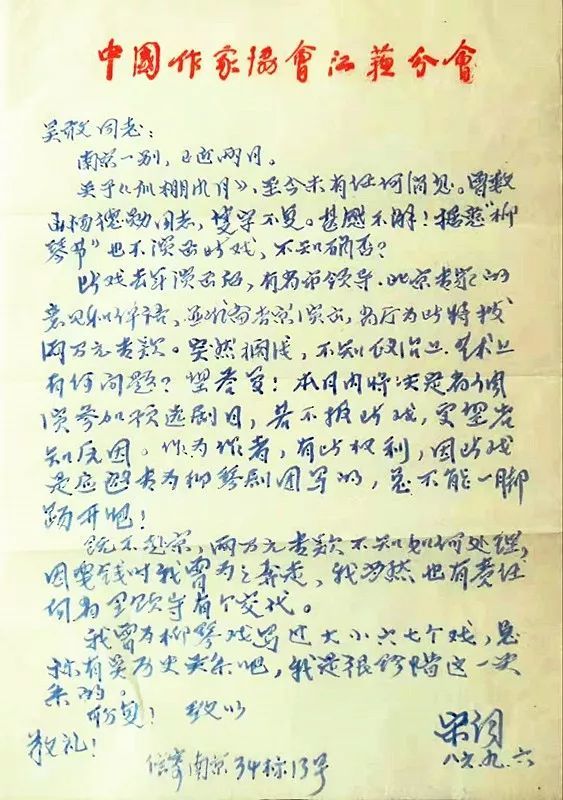 中國作家協會江蘇分會
吴敢同志：
南京一别，已近两月。
关于《瓜棚山月》，至今未有任何消息。曾数
函杨德勋同志，笔字不见。甚感不解！据悉“柳
琴节”也不演出此戏，不知确否？
此戏去年演出后，有省市领导、北京专家的
意见和评语，并准备赴京演出，省厅为此特拨
两万元专款。突然搁浅，不知政治上、艺术上
有何问题？望答复！本月内将决定省调
演参加预选剧目，若不报此戏，更望告
知原因。作为作者，有此权利，因此戏
是应邀专为柳琴剧团写的，总不能一脚
踢开吧！
既不赴京，两万元专款不知如何处理，
因要钱时我曾为之奔走，我当然也有责任
向省里领导有个交代。
我曾为柳琴戏写过大小六七个戏，总
称有点历史关系吧，我是很珍惜这一关
系的。
盼复！ 致以
敬礼！
宋词
八六、九、六
信寄南京34标13号